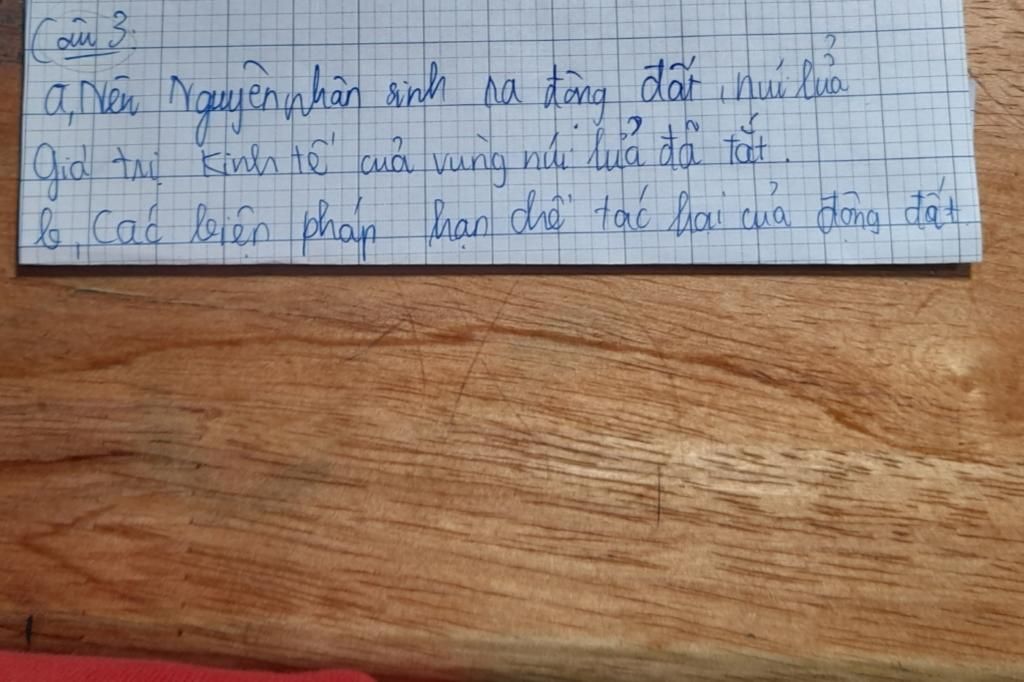 Câu 3.
a, Nêu Nguyên nhân sinh ra động đất, núi lửa?
Giá trị kinh tế của vùng núi lửa đã tắt.
b, Các biện pháp hạn chế tác hại của động đất